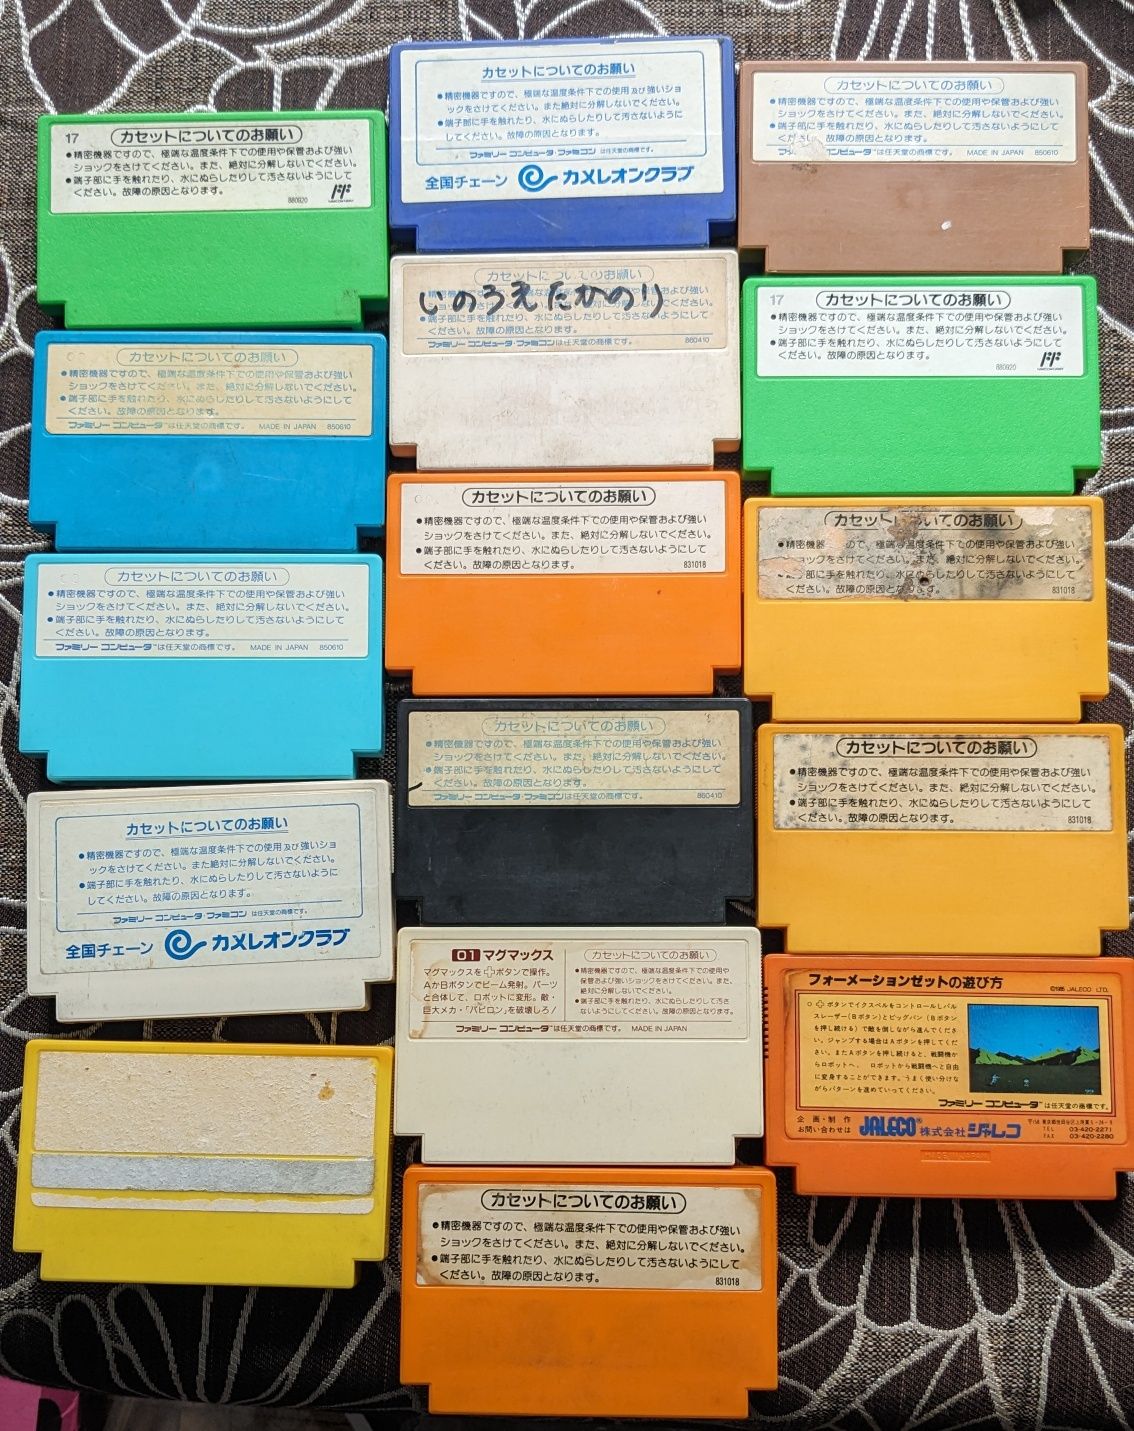 17 カセットについてのお願い
●精密機器ですので、極端な温度条件下での使用や保管および強い
ショックをさけてください。また、絶対に分解しないでください。
●端子部に手を触れたり、水にぬらしたりして汚さないようにして
ください。故障の原因となります。
880920
カセットについてのお願い
●精密機器ですので、極端な温度条件下での使用や保管および強い
ショックをさけてください。また、絶対に分解しないでください。
●端子部に手を触れたり、水にぬらしたりして汚さないようにして
ください。故障の原因となります。
ファミリー コンピュータ™は任天堂の商標です。 MADE IN JAPAN 850610
カセットについてのお願い
●精密機器ですので、極端な温度条件下での使用や保管および強い
ショックをさけてください。また、絶対に分解しないでください。
●端子部に手を触れたり、水にぬらしたりして汚さないようにして
ください。故障の原因となります。
ファミリー コンピュータ™は任天堂の商標です。 MADE IN JAPAN 850610
カセットについてのお願い
●精密機器ですので、極端な温度条件下での使用及び強いショ
ックをさけてください。また絶対に分解しないでください。
●端子部に手を触れたり、水にぬらしたりして汚さないように
してください。故障の原因となります。
ファミリー コンピュータ・ファミコン は任天堂の商標です。
全国チェーン カメレオンクラブ
カセットについてのお願い
●精密機器ですので、極端な温度条件下での使用及び強いショ
ックをさけてください。また絶対に分解しないでください。
●端子部に手を触れたり、水にぬらしたりして汚さないように
してください。故障の原因となります。
ファミリー コンピュータ・ファミコン は任天堂の商標です。
全国チェーン カメレオンクラブ
カセットについてのお願い
いのうえたかのり
端子部に手を触れたり、水にぬらしたりして汚さないようにして
ください。故障の原因となります。
ファミリー コンピュータ・ファミコンは任天堂の商標です。 860410
カセットについてのお願い
●精密機器ですので、極端な温度条件下での使用や保管および強い
ショックをさけてください。また、絶対に分解しないでください。
●端子部に手を触れたり、水にぬらしたりして汚さないようにして
ください。故障の原因となります。 831018
カセットについてのお願い
●精密機器ですので、極端な温度条件下での使用や保管および強い
ショックをさけてください。また、絶対に分解しないでください。
●端子部に手を触れたり、水にぬらしたりして汚さないようにして
ください。故障の原因となります。
ファミリー コンピュータ・ファミコンは任天堂の商標です。 860410
01 マグマックス
マグマックスを十ボタンで操作。
AかBボタンでビーム発射。パーツ
と合体して、ロボットに変形。敵・
巨大メカ・「バビロン」を破壊しろ!
カセットについてのお願い
●精密機器ですので、極端な温度条件下での使用や
保管および強いショックをさけてください。また、
絶対に分解しないでください。
●端子部に手を触れたり、水にぬらしたりして汚さ
ないようにしてください。故障の原因となります。
ファミリー コンピュータ™は任天堂の商標です。 MADE IN JAPAN
カセットについてのお願い
●精密機器ですので、極端な温度条件下での使用や保管および強い
ショックをさけてください。また、絶対に分解しないでください。
●端子部に手を触れたり、水にぬらしたりして汚さないようにして
ください。故障の原因となります。 831018
カセットについてのお願い
●精密機器ですので、極端な温度条件下での使用や保管および強い
ショックをさけてください。また、絶対に分解しないでください。
●端子部に手を触れたり、水にぬらしたりして汚さないようにして
ください。故障の原因となります。
ファミリー コンピュータ™は任天堂の商標です。 MADE IN JAPAN 850610
17 カセットについてのお願い
●精密機器ですので、極端な温度条件下での使用や保管および強い
ショックをさけてください。また、絶対に分解しないでください。
●端子部に手を触れたり、水にぬらしたりして汚さないようにして
ください。故障の原因となります。
880920
カセットについてのお願い
●精密機器ので、極端な温度条件下での使用や保管および強い
ョックをさけてください。また、絶対に分解しないでください。
部に手を触れたり、水にぬらしたりして汚さないようにして
ください。故障の原因となります。 831018
カセットについてのお願い
●精密機器ですので、極端な温度条件下での使用や保管および強い
ショックをさけてください。また、絶対に分解しないでください。
●端子部に手を触れたり、水にぬらしたりして汚さないようにして
ください。故障の原因となります。 831018
フォーメーションゼットの遊び方
©1985 JALECO LTD.
○十ボタンでイクスペルをコントロールしパル
スレーザー(Bボタン)とビッグバン(Bボタン
を押し続ける)で敵を倒しながら進んでくださ
い。ジャンプする場合はAボタンを押してくださ
い。またAボタンを押し続けると、戦闘機か
らロボットへ、ロボットから戦闘機へと自由
に変身することができます。うまく使い分けな
がらパターンを進めていってください。
ファミリー コンピュータ™は任天堂の商標です。
企画・制作
お問い合わせは JALECO® 株式会社ジャレコ
TEL 03-420-2271
FAX 03-420-2280
MADE IN JAPAN